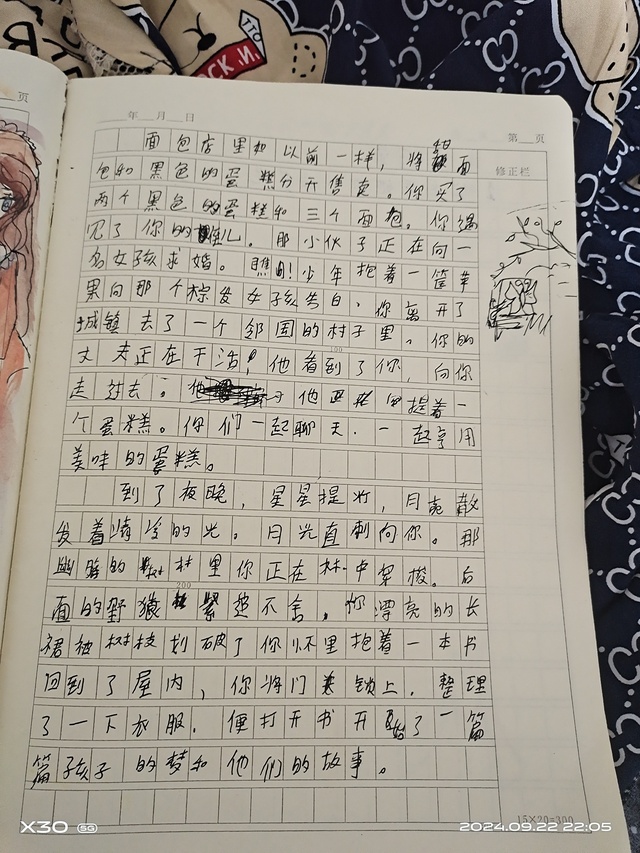 页
年 月 日
第 页
修正栏
面包店里和以前一样，将甜面
包和黑色的蛋糕分开售卖。你买了
两个黑色的蛋糕和三个面包。你遇
见了你的儿。那小伙子正在向一
名女孩求婚。瞧！少年抱着一筐苹
果向那个棕发女孩告白，你离开了
城镇去了一个邻国的村子里。你的
丈夫正在干活！他看到了你，向你
走过去。他手中提着一
个蛋糕。你们一起聊天，一起享用
美味的蛋糕。
到了夜晚，星星提灯，月亮散
发着清冷的光。月光直刺向你。那
幽暗的林里你正在林中穿梭。后
面的野狼紧追不舍，你漂亮的长
裙被树枝划破了你怀里抱着一本书
回到了屋内，你将门关锁上，整理
了一下衣服，便打开书开始了一篇
篇孩子的梦和他们的故事。
100
200
15×20=300
X30 5G
2024.09.22 22:05